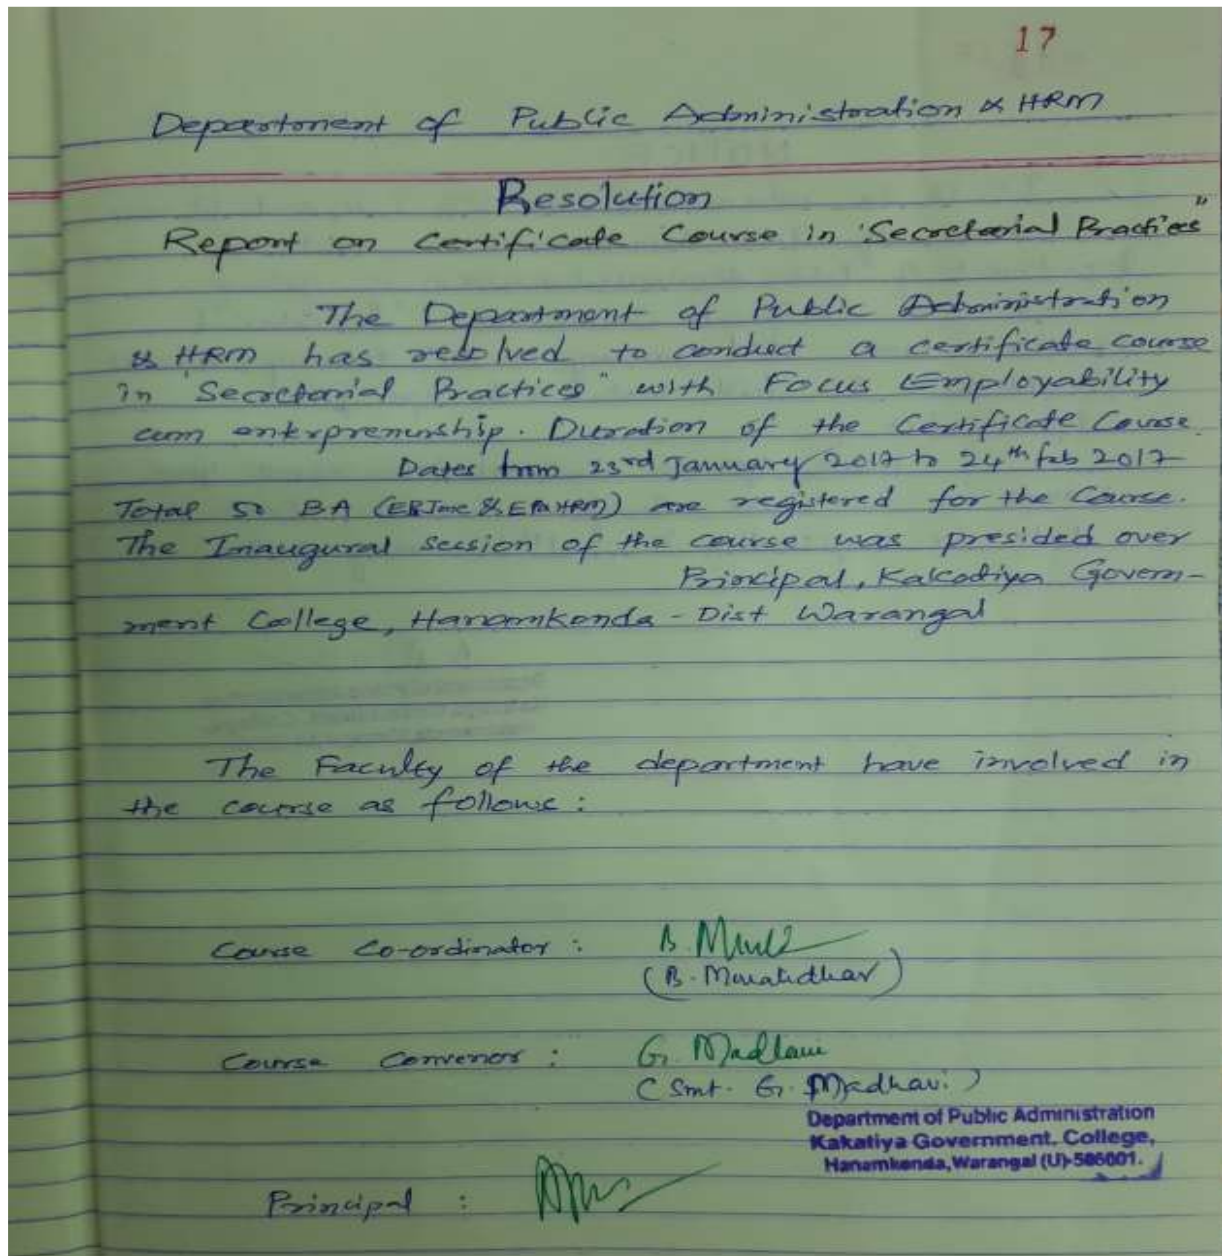 17
Department of Public Administration & HRM
Resolution
Report on Certificate Course in "Secretarial Practices"
The Department of Public Administration
& HRM has resolved to conduct a certificate course
in "Secretarial Practices" with Focus Employability
cum entrprenurship. Duration of the Certificate Course
Dates from 23rd January 2017 to 24th feb 2017
Total 50 BA ( & EPaHRM) are registered for the Course.
The Inaugural session of the course was presided over
Principal, Kakatiya Govern-
ment College, Hanamkonda - Dist Warangal
The Faculty of the department have involved in
the course as follows:
Course Co-ordinator :
(B. Muralidhar)
Course Convenor : G. Madhavi
(Smt. G. Madhavi)
Department of Public Administration
Kakatiya Government. College,
Hanamkonda, Warangal (U)-506001.
Principal :